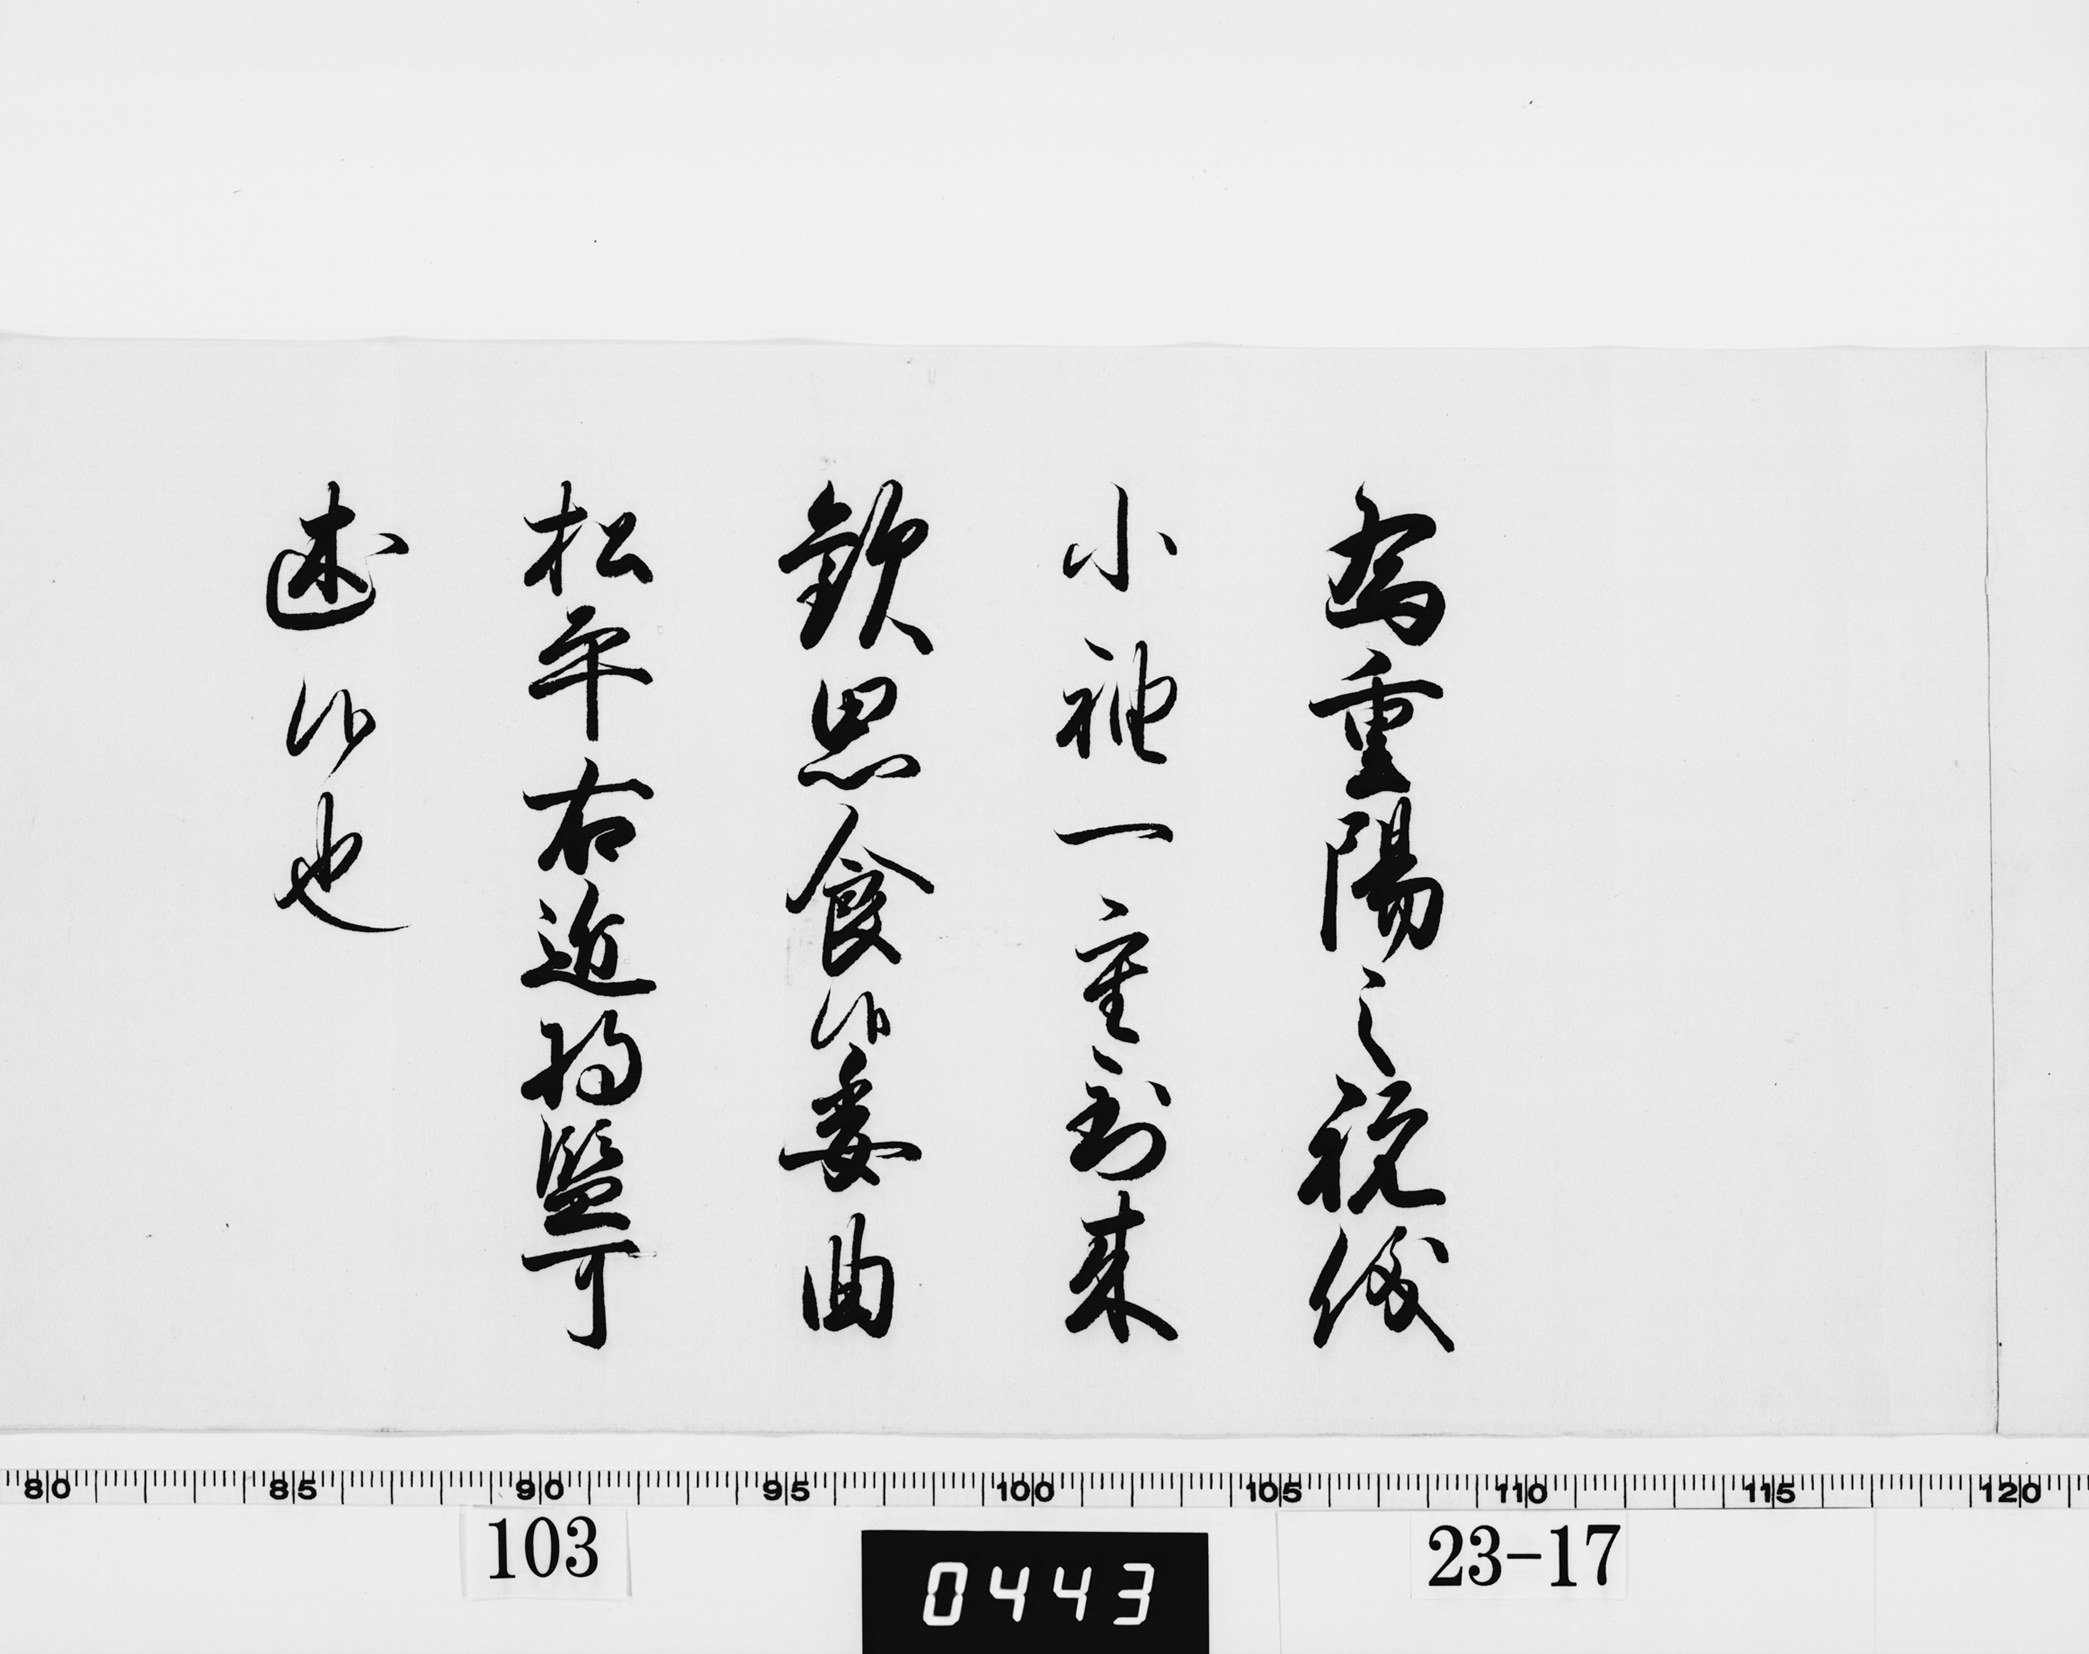 為重陽之祝儀
小袖一重到来
歓思食候委曲
松平右近将監可
述候也
80 85 90 95 100 105 110 115 120
103
0443
23-17